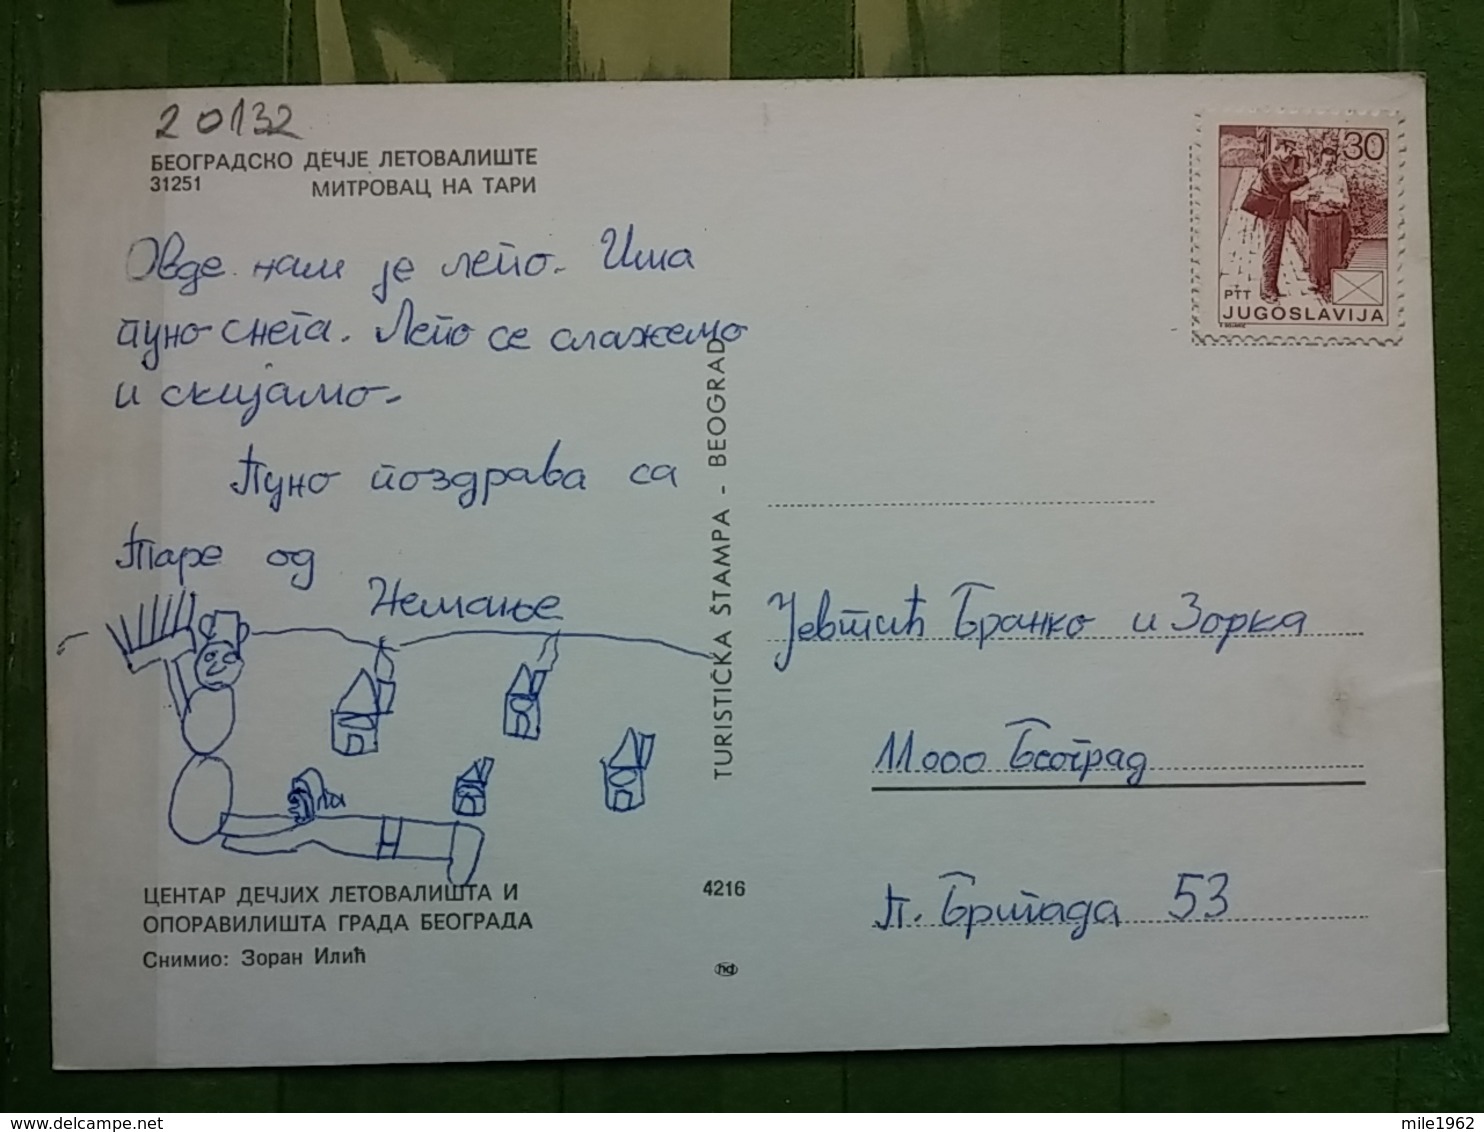 20132
БЕОГРАДСКО ДЕЧЈЕ ЛЕТОВАЛИШТЕ
31251 МИТРОВАЦ НА ТАРИ
Овде нам је лепо. Има
пуно снега. Лепо се слажемо
и скијамо.
Пуно поздрава са
Таре од
Немање
ЦЕНТАР ДЕЧЈИХ ЛЕТОВАЛИШТА И
ОПОРАВИЛИШТА ГРАДА БЕОГРАДА
Снимио: Зоран Илић
TURISTIČKA ŠTAMPA - BEOGRAD
4216
30
PTT
JUGOSLAVIJA
Јевтић Бранко и Зорка
11000 Београд
П. Бригада 53
mile1962